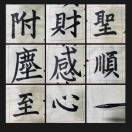 附財聖
塵感順
至心